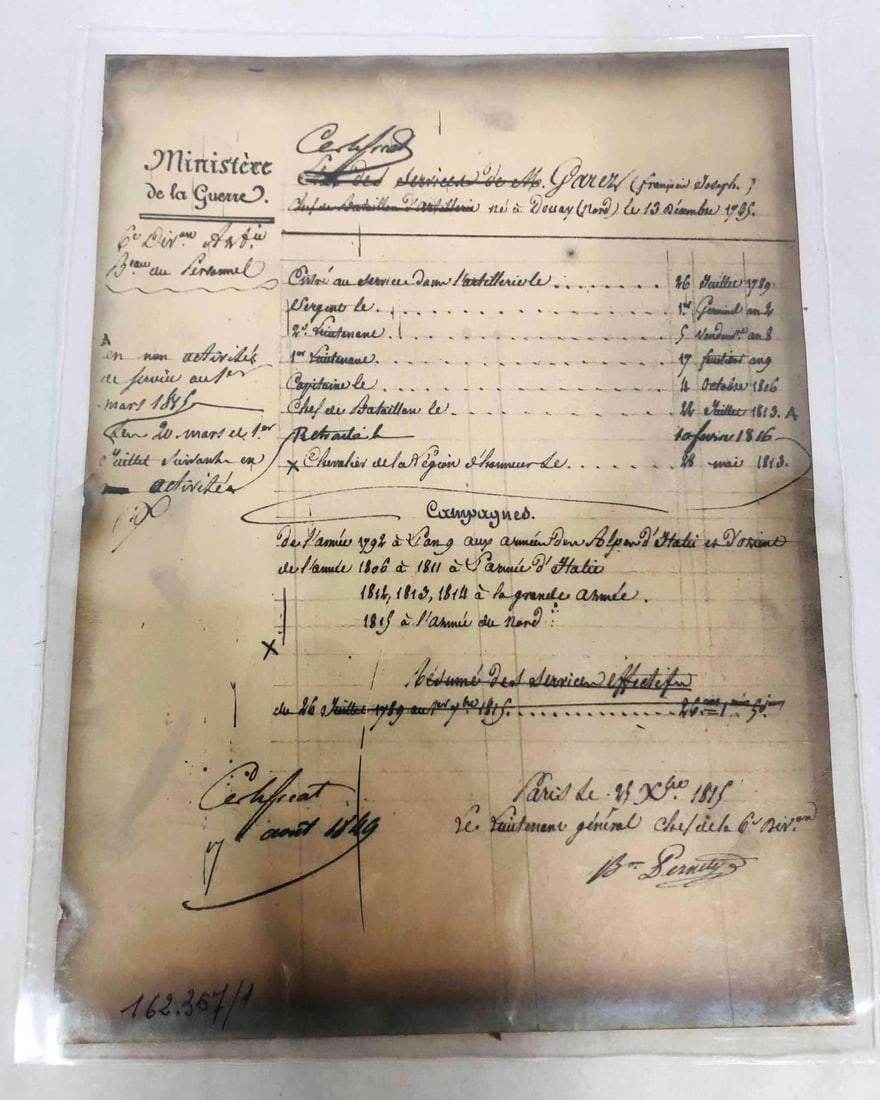 Certificat
Ministère
de la Guerre.
Etat des services de M. Garez (françois Joseph.)
Chef de Bataillon d'artillerie né à Douay (Nord) le 13 Décembre
6e Divon
Beau du Personnel
Entré au service dans l'artillerie le 26 Juillet 1789
Sergent le 1er Germinal an 2
2d Lieutenant 5 an 8
1er Lieutenant 17 an 9
Capitaine le 4 Octobre 1806
Chef de Bataillon le Juillet 1813. A
Retraité le 1816
X Chevalier de la Légion d'honneur Le 28 mai 1813.
A
en non activité
de service au 1er
mars 1815
20 mars et 1er
Juillet suivant en
activité
Campagnes.
de l'année 1792 à l'an 9 aux armées des Alpes d'Italie et d'orient
de l'année 1806 à 1811 à l'armée d'Italie
1812, 1813, 1814 à la grande armée.
1815 à l'armée du nord
X
Résumé des services effectifs
du 26 Juillet 1789 au 1er 7bre 1815
Certificat
août 1849
Paris Le Xbre 1815
Le Lieutenant général Chef de la 6e Divon
Bon Pernety
162.367/1